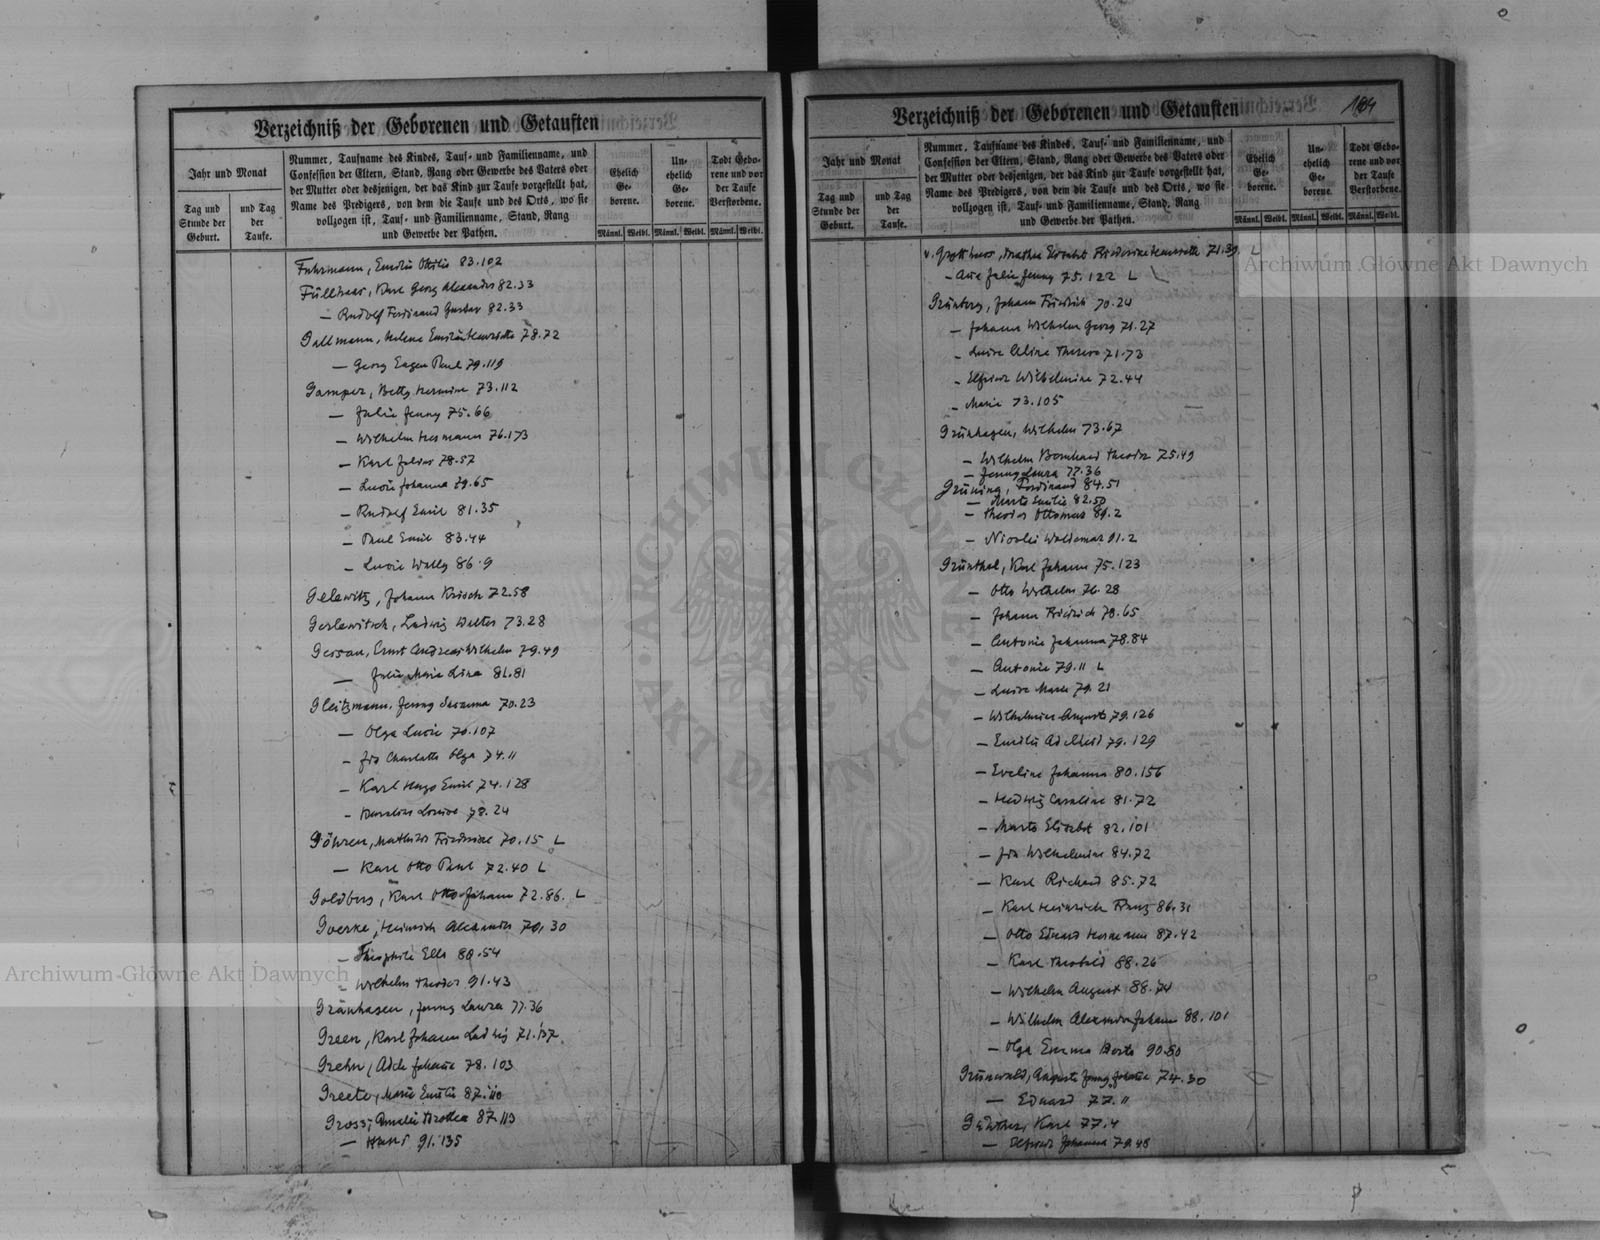 Verzeichniß der Geborenen und Getauften
Jahr und Monat
Tag und Stunde der Geburt.
und Tag der Taufe.
Nummer, Taufname des Kindes, Tauf- und Familienname, und
Confession der Eltern, Stand, Rang oder Gewerbe des Vaters oder
der Mutter oder desjenigen, der das Kind zur Taufe vorgestellt hat,
Name des Predigers, von dem die Taufe und des Orts, wo sie
vollzogen ist, Tauf- und Familienname, Stand, Rang
und Gewerbe der Pathen.
Ehelich Ge-borene.
Un-ehelich Ge-borene.
Todt Gebo-rene und vor der Taufe Verstorbene.
Männl. Weibl. Männl. Weibl. Männl. Weibl.
Fuhrmann, Emilie Ottilie 83.102
Füllhaas, Karl Georg Alexander 82.33
— Rudolf Ferdinand Gustav 82.33
Gallmann, Helene Emilie Henriette 78.72
— Georg Eugen Paul 79.119
Gamper, Betty Hermine 73.112
— Julie Jenny 75.66
— Wilhelm Hermann 76.173
— Karl Julius 78.57
— Lucie Johanna 79.65
— Rudolf Emil 81.35
— Paul Emil 83.44
— Lucie Wally 86.9
Gelewitz, Johann 72.58
Gerlewitsch, Ludwig Walter 73.28
Gersau, Ernst Andreas Wilhelm 79.49
— Julie Marie Lina 81.81
Gleitzmann, Jenny Susanna 70.23
— Olga Lucie 70.107
— Ida Charlotte Olga 74.11
— Karl Hugo Emil 74.128
— Louise 78.24
Göhren, Mathilde Friederike 70.15 L
— Karl Otto Paul 72.40 L
Goldberg, Karl Otto Johann 72.86. L
Goerke, Heinrich Alexander 70.30
— Theophile Ella 88.54
— Wilhelm Theodor 91.43
Gränhagen, Jenny Laura 77.36
Green, Karl Johann Ludwig 71.137.
Grehn, Adele Johanna 78.103
Greete, Marie Emilie 87.110
Gross, Amalie Dorothea 87.113
— Hans 91.135
Verzeichniß der Geborenen und Getauften
164
Jahr und Monat
Tag und Stunde der Geburt.
und Tag der Taufe.
Nummer, Taufname des Kindes, Tauf- und Familienname, und
Confession der Eltern, Stand, Rang oder Gewerbe des Vaters oder
der Mutter oder desjenigen, der das Kind zur Taufe vorgestellt hat,
Name des Predigers, von dem die Taufe und des Orts, wo sie
vollzogen ist, Tauf- und Familienname, Stand, Rang
und Gewerbe der Pathen.
Ehelich Ge-borene.
Un-ehelich Ge-borene.
Todt Gebo-rene und vor der Taufe Verstorbene.
Männl. Weibl. Männl. Weibl. Männl. Weibl.
v. Grotthuss, Martha Elisabet Friederike Henriette 71.39. L
— Ada Julie Jenny 75.122 L
Grünberg, Johann Friedrich 70.24
— Johann Wilhelm Georg 71.27
— Luise Aline Therese 71.73
— Elfriede Wilhelmine 72.44
— Marie 73.105
Grünhagen, Wilhelm 73.67
— Wilhelm Bernhard Theodor 75.49
— Jenny Laura 77.36
Grüning, Ferdinand 84.51
— Marta Emilie 82.50
— Theodor Ottomar 89.2
— Nicolai Woldemar 91.2
Grünthal, Karl Johann 75.123
— Otto Wilhelm 76.28
— Johann Friedrich 78.65
— Antonie Johanna 78.84
— Antonie 79.11 L
— Luise Marie 79.21
— Wilhelmine Auguste 79.126
— Emilie Adelheid 79.129
— Eveline Johanna 80.156
— Hedwig Caroline 81.72
— Marta Elisabet 82.101
— Ida Wilhelmine 84.72
— Karl Richard 85.72
— Karl Heinrich Franz 86.31
— Otto Eduard Hermann 87.42
— Karl Theobald 88.26
— Wilhelm August 88.74
— Wilhelm Alexander Johann 88.101
— Olga Emma Berta 90.80
Grünwald, Auguste Jenny Johanna 74.30
— Eduard 77.11
Günther, Karl 77.4
— Elfriede Johanna 79.48
Archiwum Główne Akt Dawnych
Archiwum Główne Akt Dawnych
ARCHIWUM GŁÓWNE AKT DAWNYCH